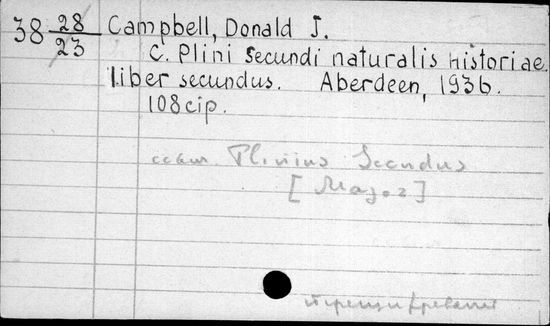 38 28/23 Campbell, Donald J.
C. Plini Secundi naturalis Historiae
liber secundus. Aberdeen, 1936.
108 стр.
Plinius Secundus
[Major]